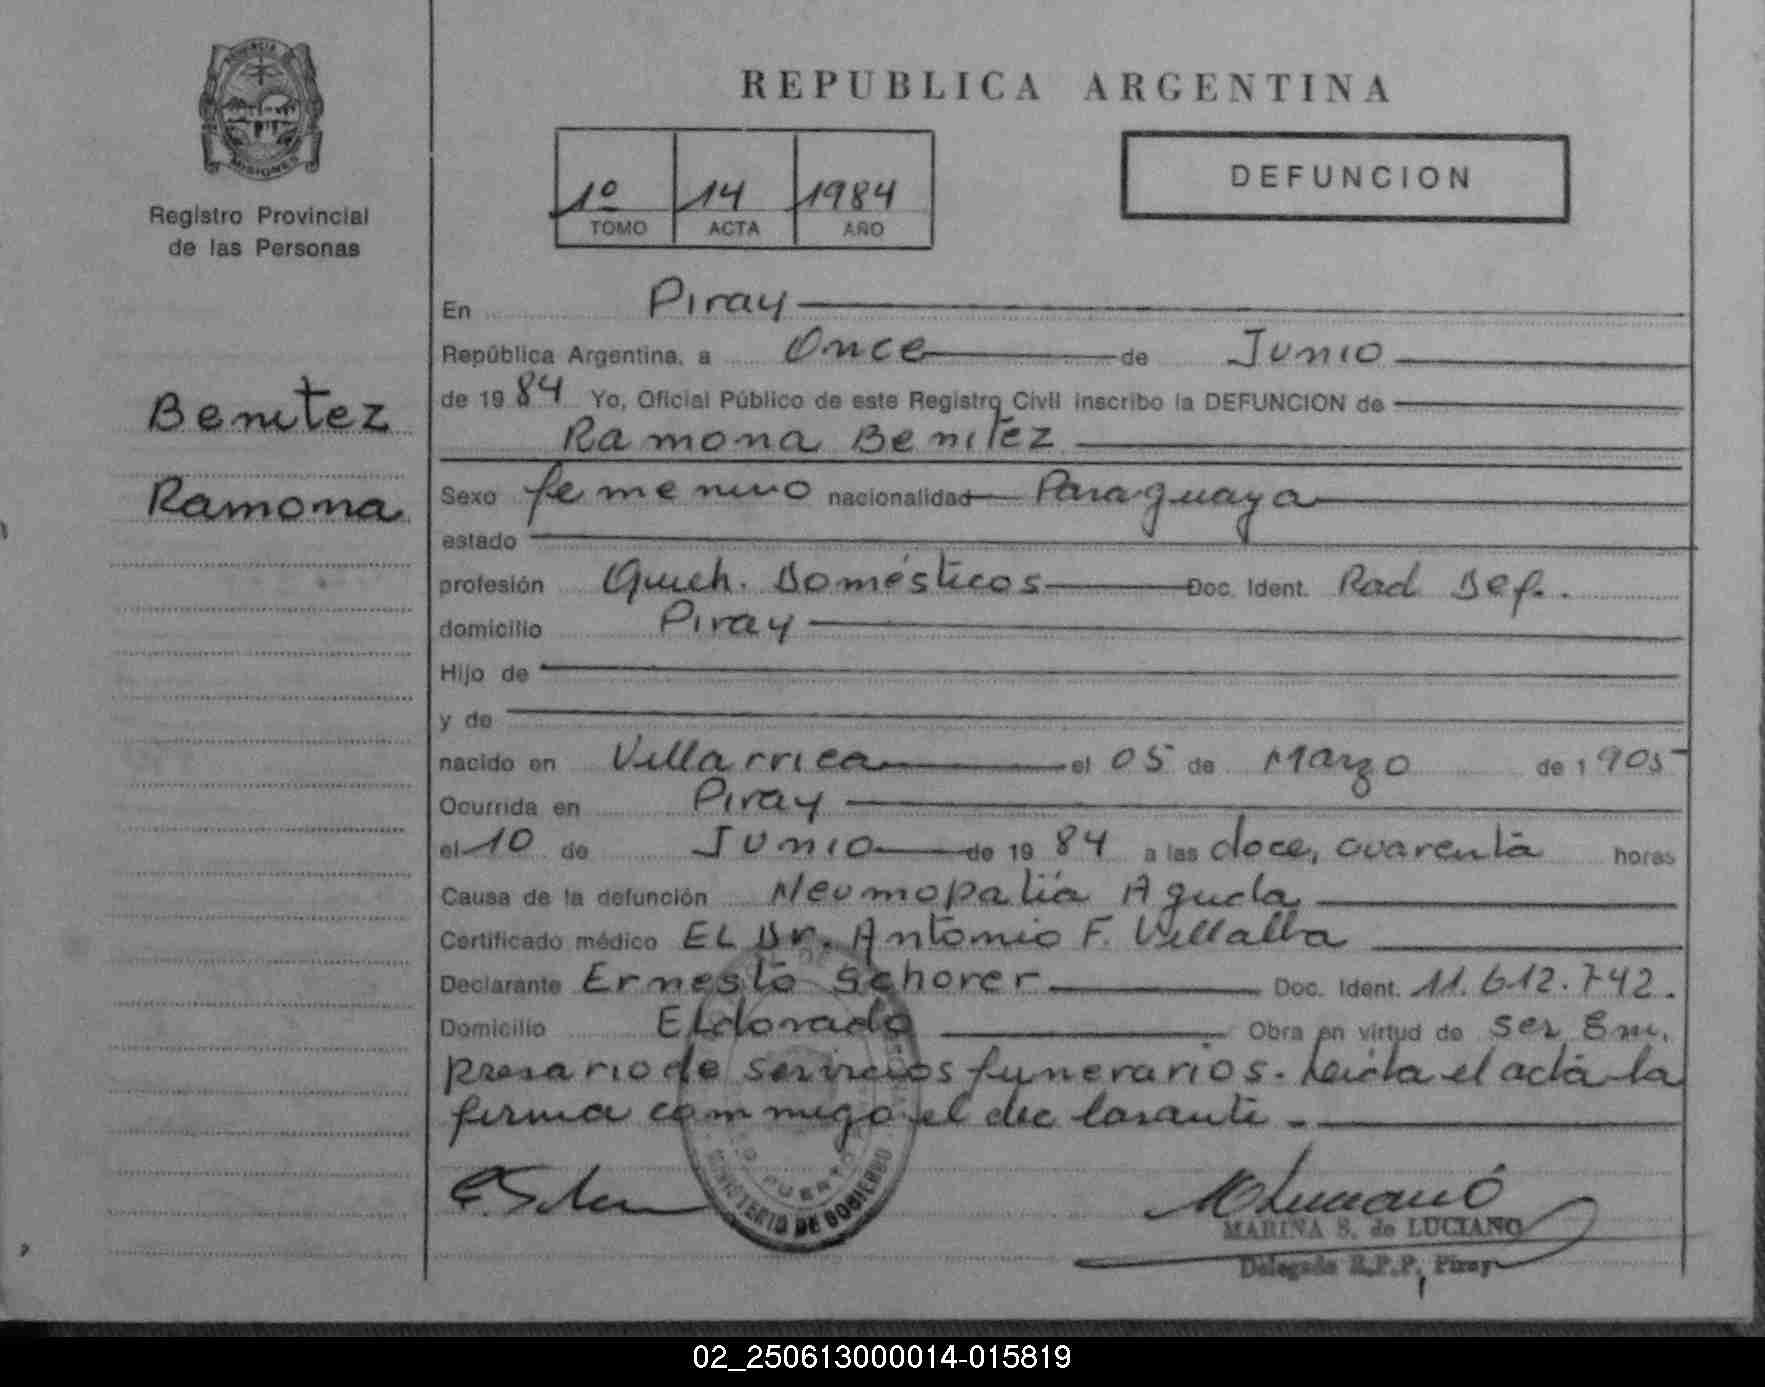 PROVINCIA
MISIONES
Registro Provincial
de las Personas
Benitez
Ramona
REPUBLICA ARGENTINA
1º 14 1984
TOMO ACTA AÑO
DEFUNCION
En Piray
República Argentina, a Once de Junio
de 1984 Yo, Oficial Público de este Registro Civil inscribo la DEFUNCION de
Ramona Benitez
Sexo femenino nacionalidad Paraguaya
estado
profesión Queh. Domésticos Doc. Ident. Rad Def.
domicilio Piray
Hijo de
y de
nacido en Villarrica el 05 de Marzo de 1905
Ocurrida en Piray
el 10 de Junio de 1984 a las doce, cuarenta horas
Causa de la defunción Neumopatia Aguda
Certificado médico EL Dr. Antonio F. Villalba
Declarante Ernesto Schorer Doc. Ident. 11.612.742.
Domicilio Eldorado Obra en virtud de ser Em.
presario de servicios funerarios. Leida el acta la
firma conmigo el declarante.
MINISTERIO DE GOBIERNO
PUERTO
MARINA S. de LUCIANO
Delegada R.P.P. Piray
02_250613000014-015819